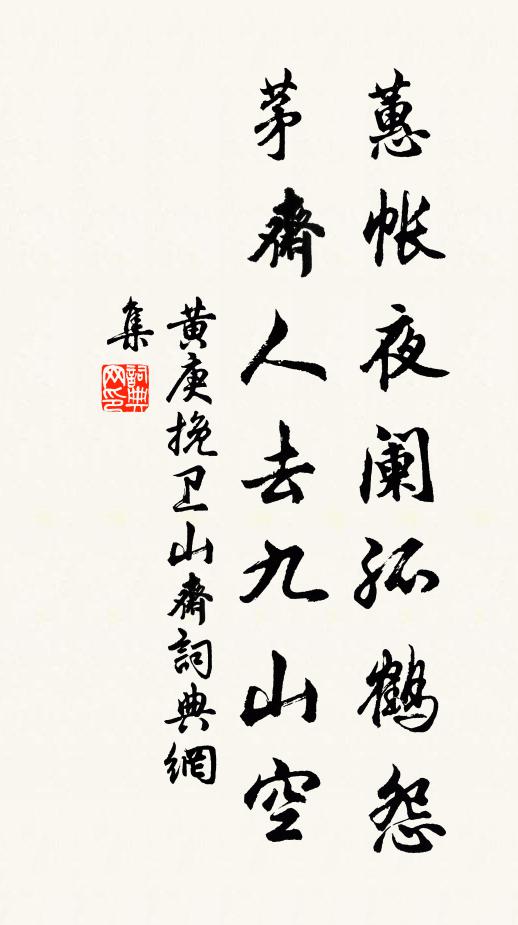 蕙帐夜阑孤鹤怨
茅齋人去九山空
黄庚挽卫山齋詞典網
集
詞典
网印